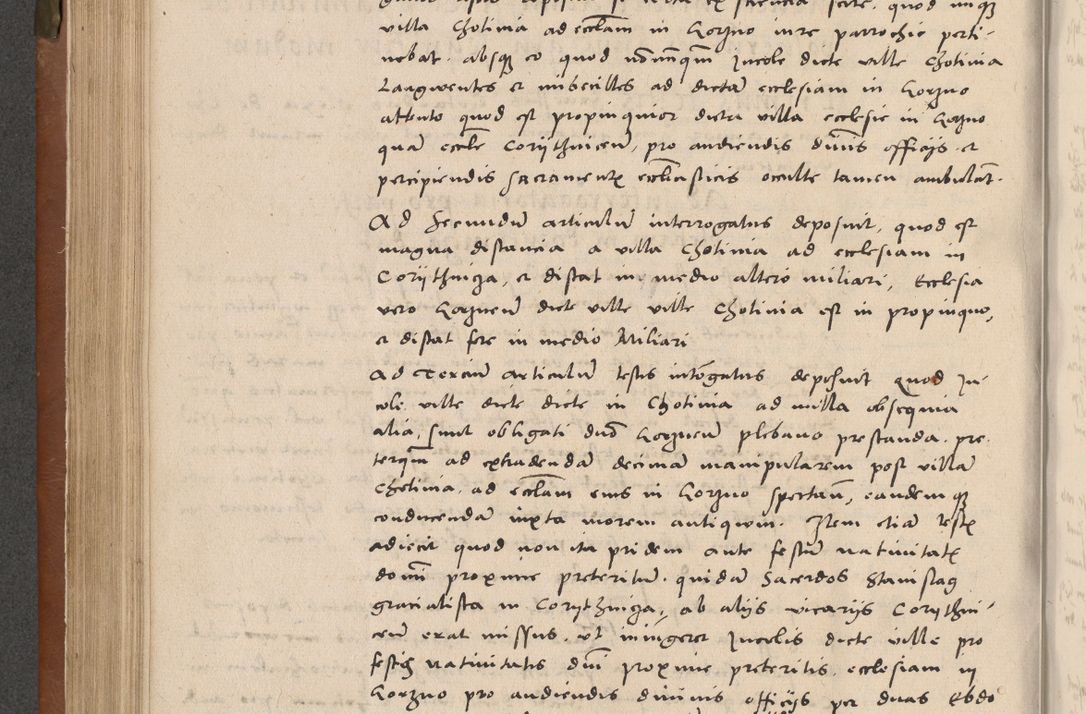 villa Chotinia ad eccliam in Gorzno iure parrochie perti-
nebat. absqz eo quod nonnunqm Incole dicte ville Chotinia
Langwentes et imbecilles ad dictam ecclesiam in Gorzno
attento quod est propinquior dicta villa ecclesie in Gorzno
quam eccle Coriithnicen, pro audiendis divinis officijs et
percipiendis sacramentis eccliasticis occulte tamen ambulant.
Ad Secundum articulum interrogatus deposuit, quod est
magna distancia a villa Chotinia ad ecclesiam in
Coriithniga, et distat in medio altero miliari, Ecclesia
vero Gorznen dicte ville ville Chotinia est in propinquo,
et distat fere in medio Miliari
Ad Tercium articulum testis intogatus deposuit Quod In-
cole ville dicte dicte in Chotinia ad nulla obsequia
alia, sunt obligati dno Gorznen plebano prestanda. pre-
terqm ad extradendam decimam manipularem post villam
Chotinia. ad eccliam eius in Gorzno spectan, eandemqz
conducendam iuxta morem antiquum. Item etiam testis
adiecit quod non ita pridem ante festum nativitatis
domini proxime preteritum. quidam Sacerdos Stanislaus
gracialista in Corythniga, ab alijs vicarijs Corythni-
cen erat missus. ut iniungeret Incolis dicte ville pro
festis nativitatis dni proxime preteritis. ecclesiam in
Gorzno pro audiendis divinis officijs per duas Ebdo